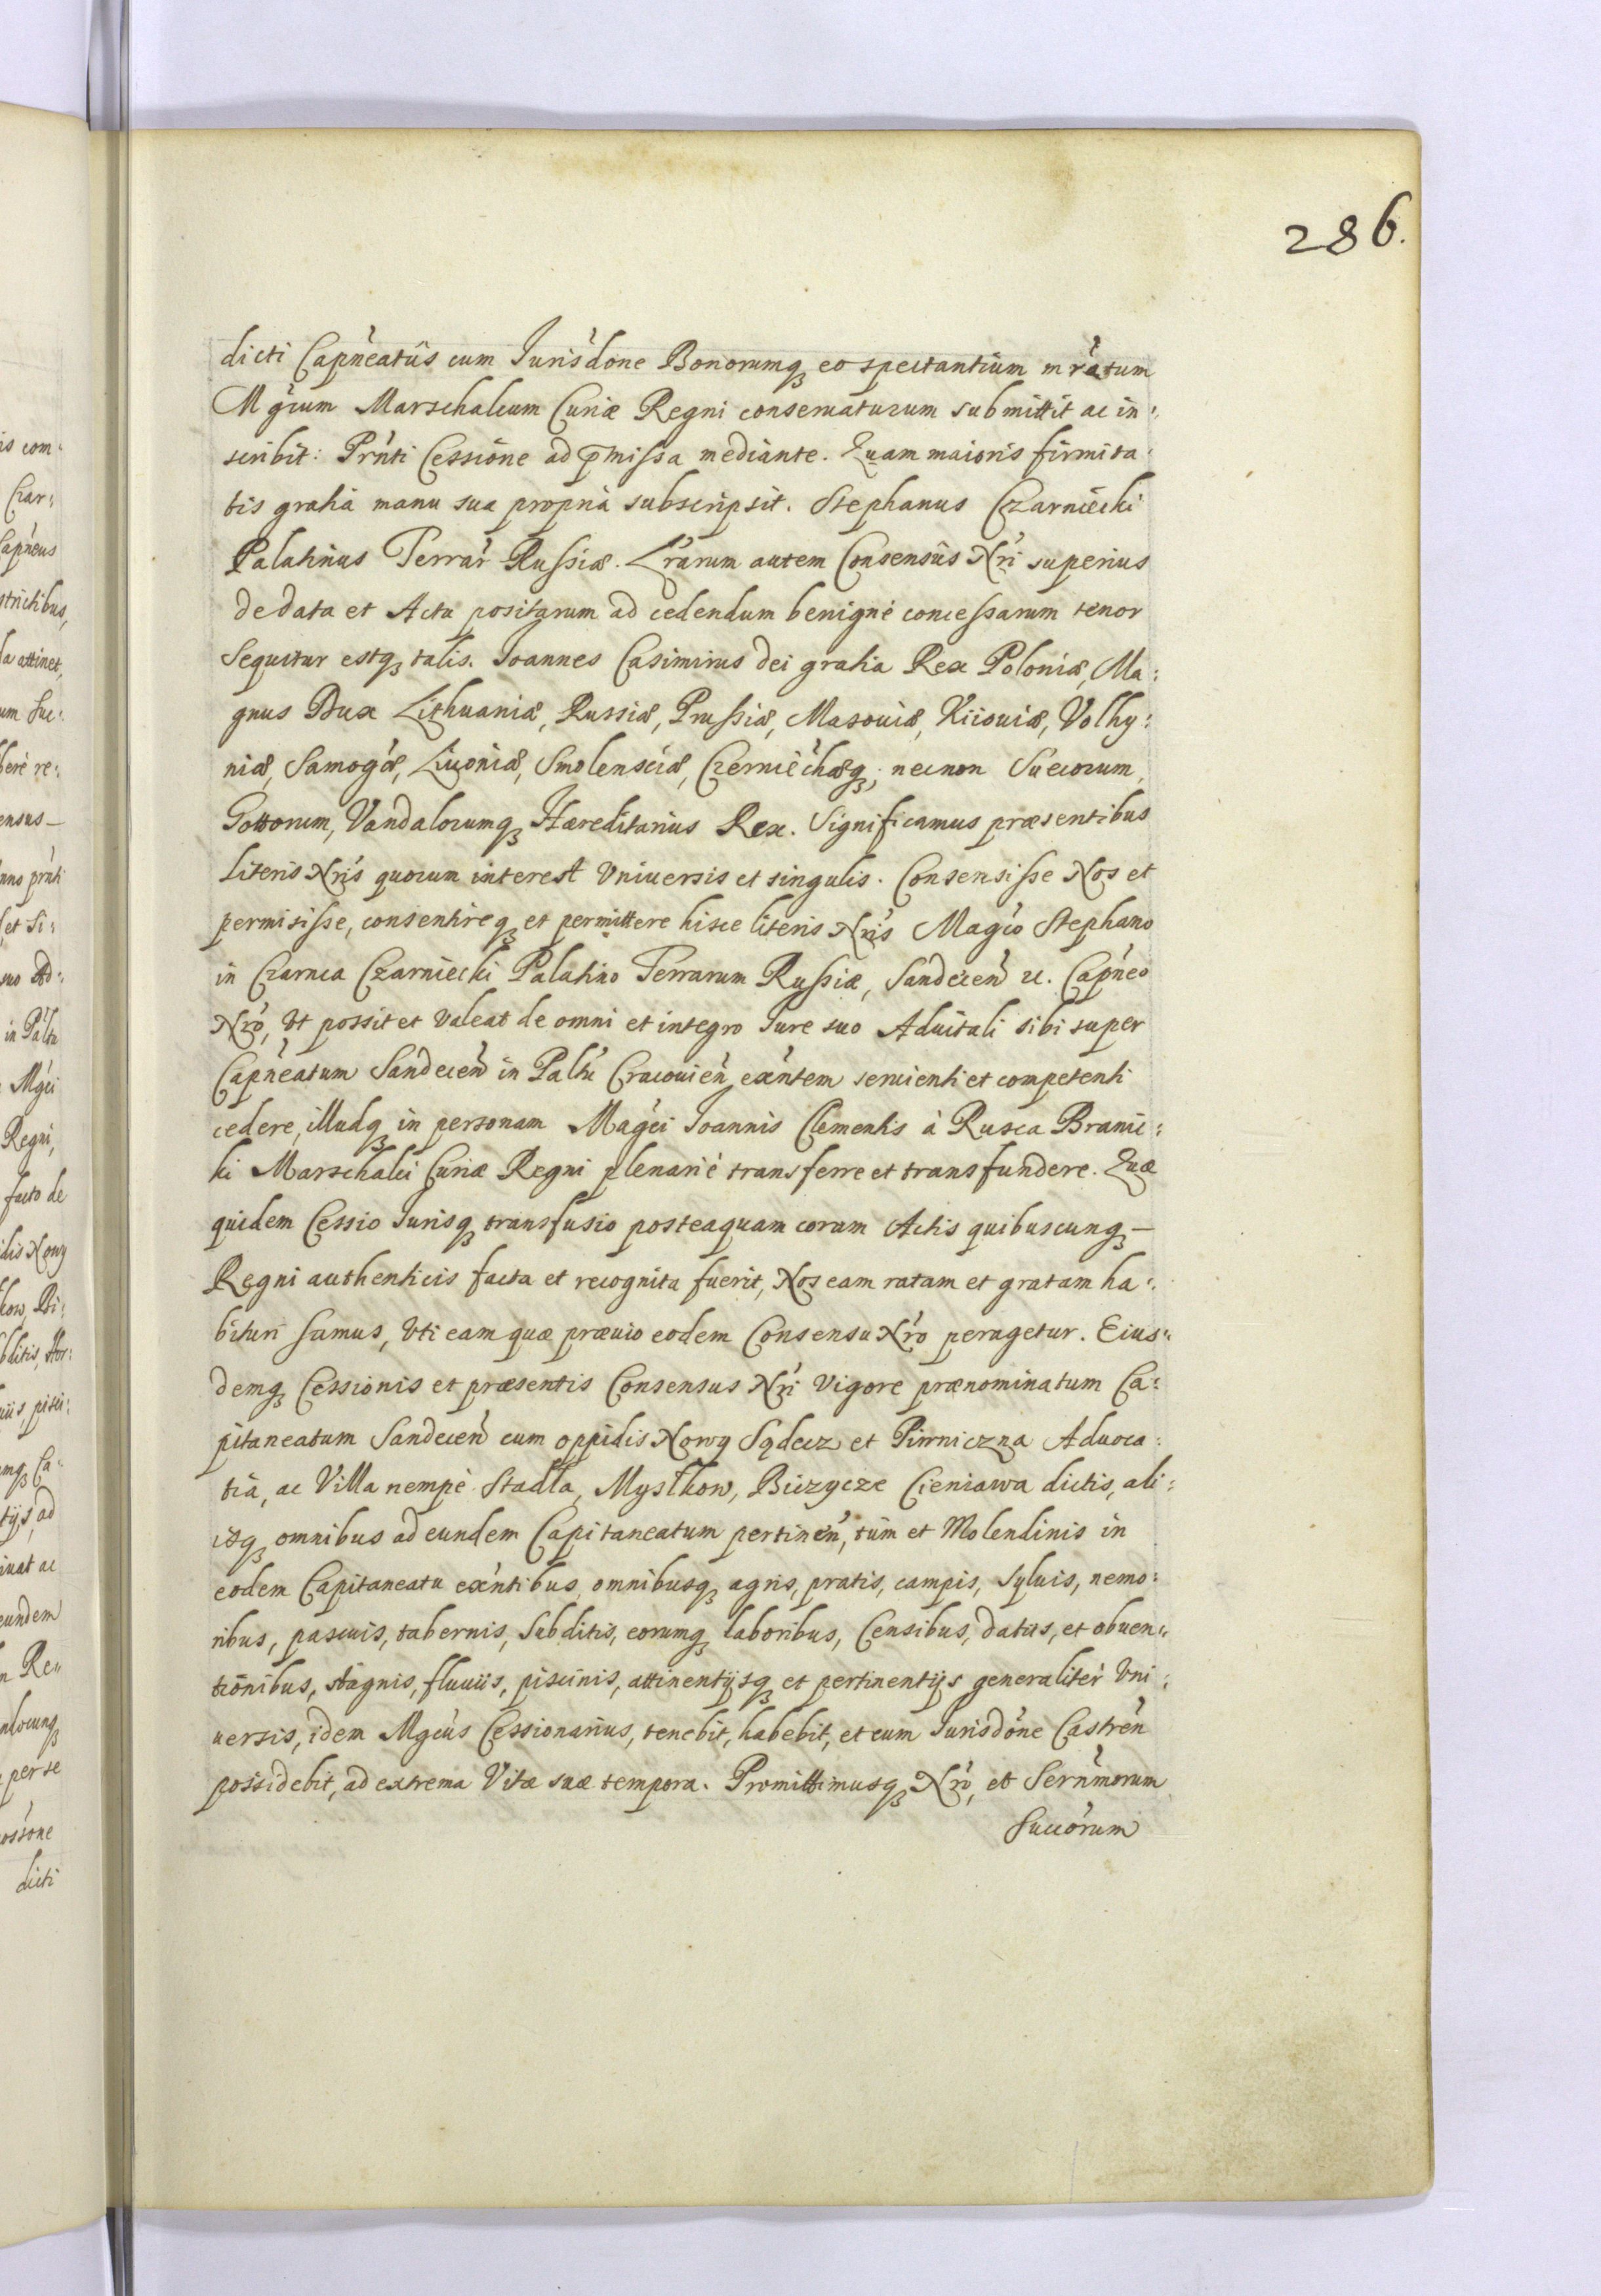 286.
dicti Capneatus cum Jurisdone Bonorumq eo spectantium mratum
Mgcum Marschalcum Curiæ Regni conseruaturum submittit ac in:
scribit: Prnti Cessione ad pmissa mediante. Quam maioris firmita:
tis gratia manu sua propria subscripsit. Stephanus Czarniecki
Palatinus Terrar Russiæ. Lrarum autem Consensus Nri superius
de data et Actu positarum ad cedendum benignè concessarum tenor
Sequitur estq talis. Joannes Casimirus dei gratia Rex Poloniæ, Ma:
gnus Dux Lithuaniæ, Russiæ, Prussiæ, Masouiæ, Kiiouiæ, Volhy:
niæ, Samogæ, Liuoniæ, Smolensciæ, Czerniechæq, necnon Suecorum,
Gottorum, Vandalorumq Hæreditarius Rex. Significamus præsentibus
literis Nris quorum interest Vniuersis et singulis. Consensisse Nos et
permisisse, consentireq et permittere hisce literis Nris Magco Stephano
in Czarnca Czarniecki Palatino Terrarum Russiæ, Sandecen &c. Capneo
Nro, Vt possit et valeat de omni et integro Jure suo Aduitali sibi super
Capneatum Sandecen in Paltu Cracouien exntem seruienti et competenti
cedere, illudq in personam Magci Joannis Clementis à Rusca Branic:
ki Marschalci Curiæ Regni plenariè transferre et transfundere. Quæ
quidem Cessio Jurisq transfusio posteaquam coram Actis quibuscunq —
Regni authenticis facta et recognita fuerit, Nos eam ratam et gratam ha:
bituri sumus, Vti eam quæ præuio eodem Consensu Nro peragetur. Eius:
demq Cessionis et præsentis Consensus Nri Vigore prænominatum Ca:
pitaneatum Sandecen cum oppidis Nowy Sądecz et Piwniczna Aduoca:
tia, ac Villa nempè Stadla, Mystkow, Biczycze Cieniawa dictis, ali:
isq omnibus ad eundem Capitaneatum pertinen, tum et Molendinis in
eodem Capitaneatu exntibus, omnibusq agris, pratis, campis, syluis, nemo:
ribus, pascuis, tabernis, Subditis, eorumq laboribus, Censibus, datiis, et obuen:
tionibus, stagnis, fluuiis, piscinis, attinentijsq et pertinentijs generaliter Vni:
uersis, idem Mgcus Cessionarius, tenebit, habebit, et cum Jurisdone Castren
possidebit, ad extrema Vitæ suæ tempora. Promittimusq Nro, et Sernmorum
Succorum